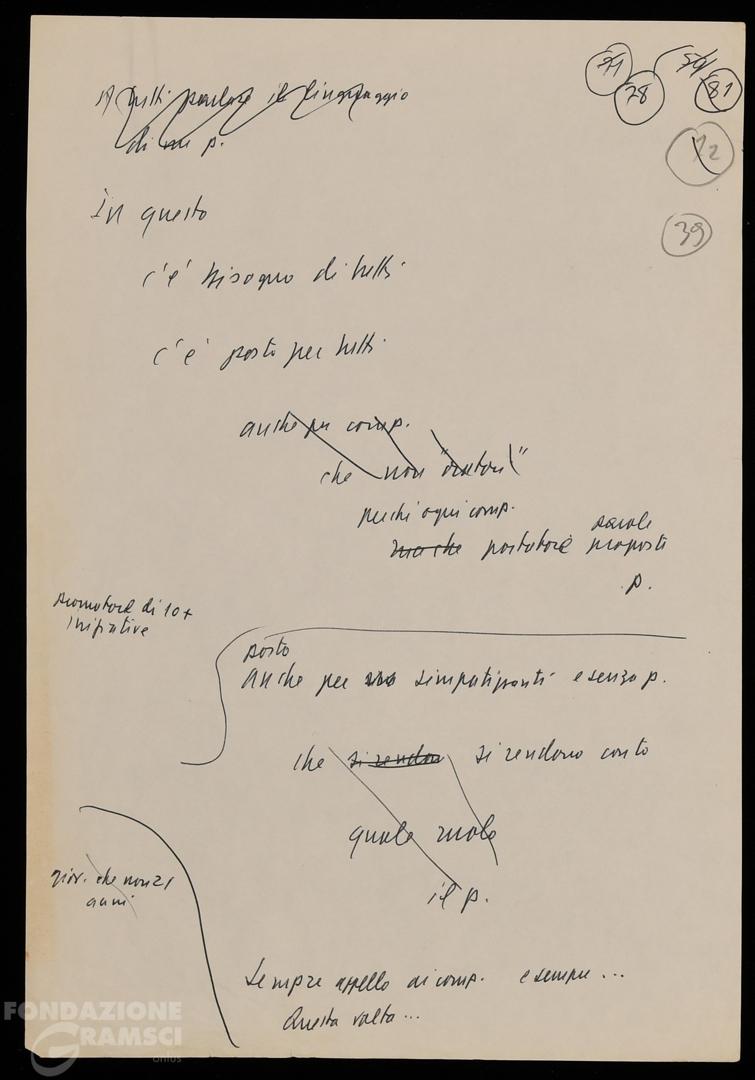 71
78
81
12
39
A tutti parlare il linguaggio
di un p.
In questo
c'è bisogno di tutti
c'è posto per tutti
anche per comp.
che non "oratori"
perché ogni comp.
ma che portatore parole proposte
p.
promotore di 10 +
iniziative
posto
anche per simpatizzanti e senza p.
che si rendon si rendono conto
quale ruolo
il p.
giov. che non 21
anni
Sempre appello ai comp. e sempre...
Questa volta...
FONDAZIONE
GRAMSCI
onlus